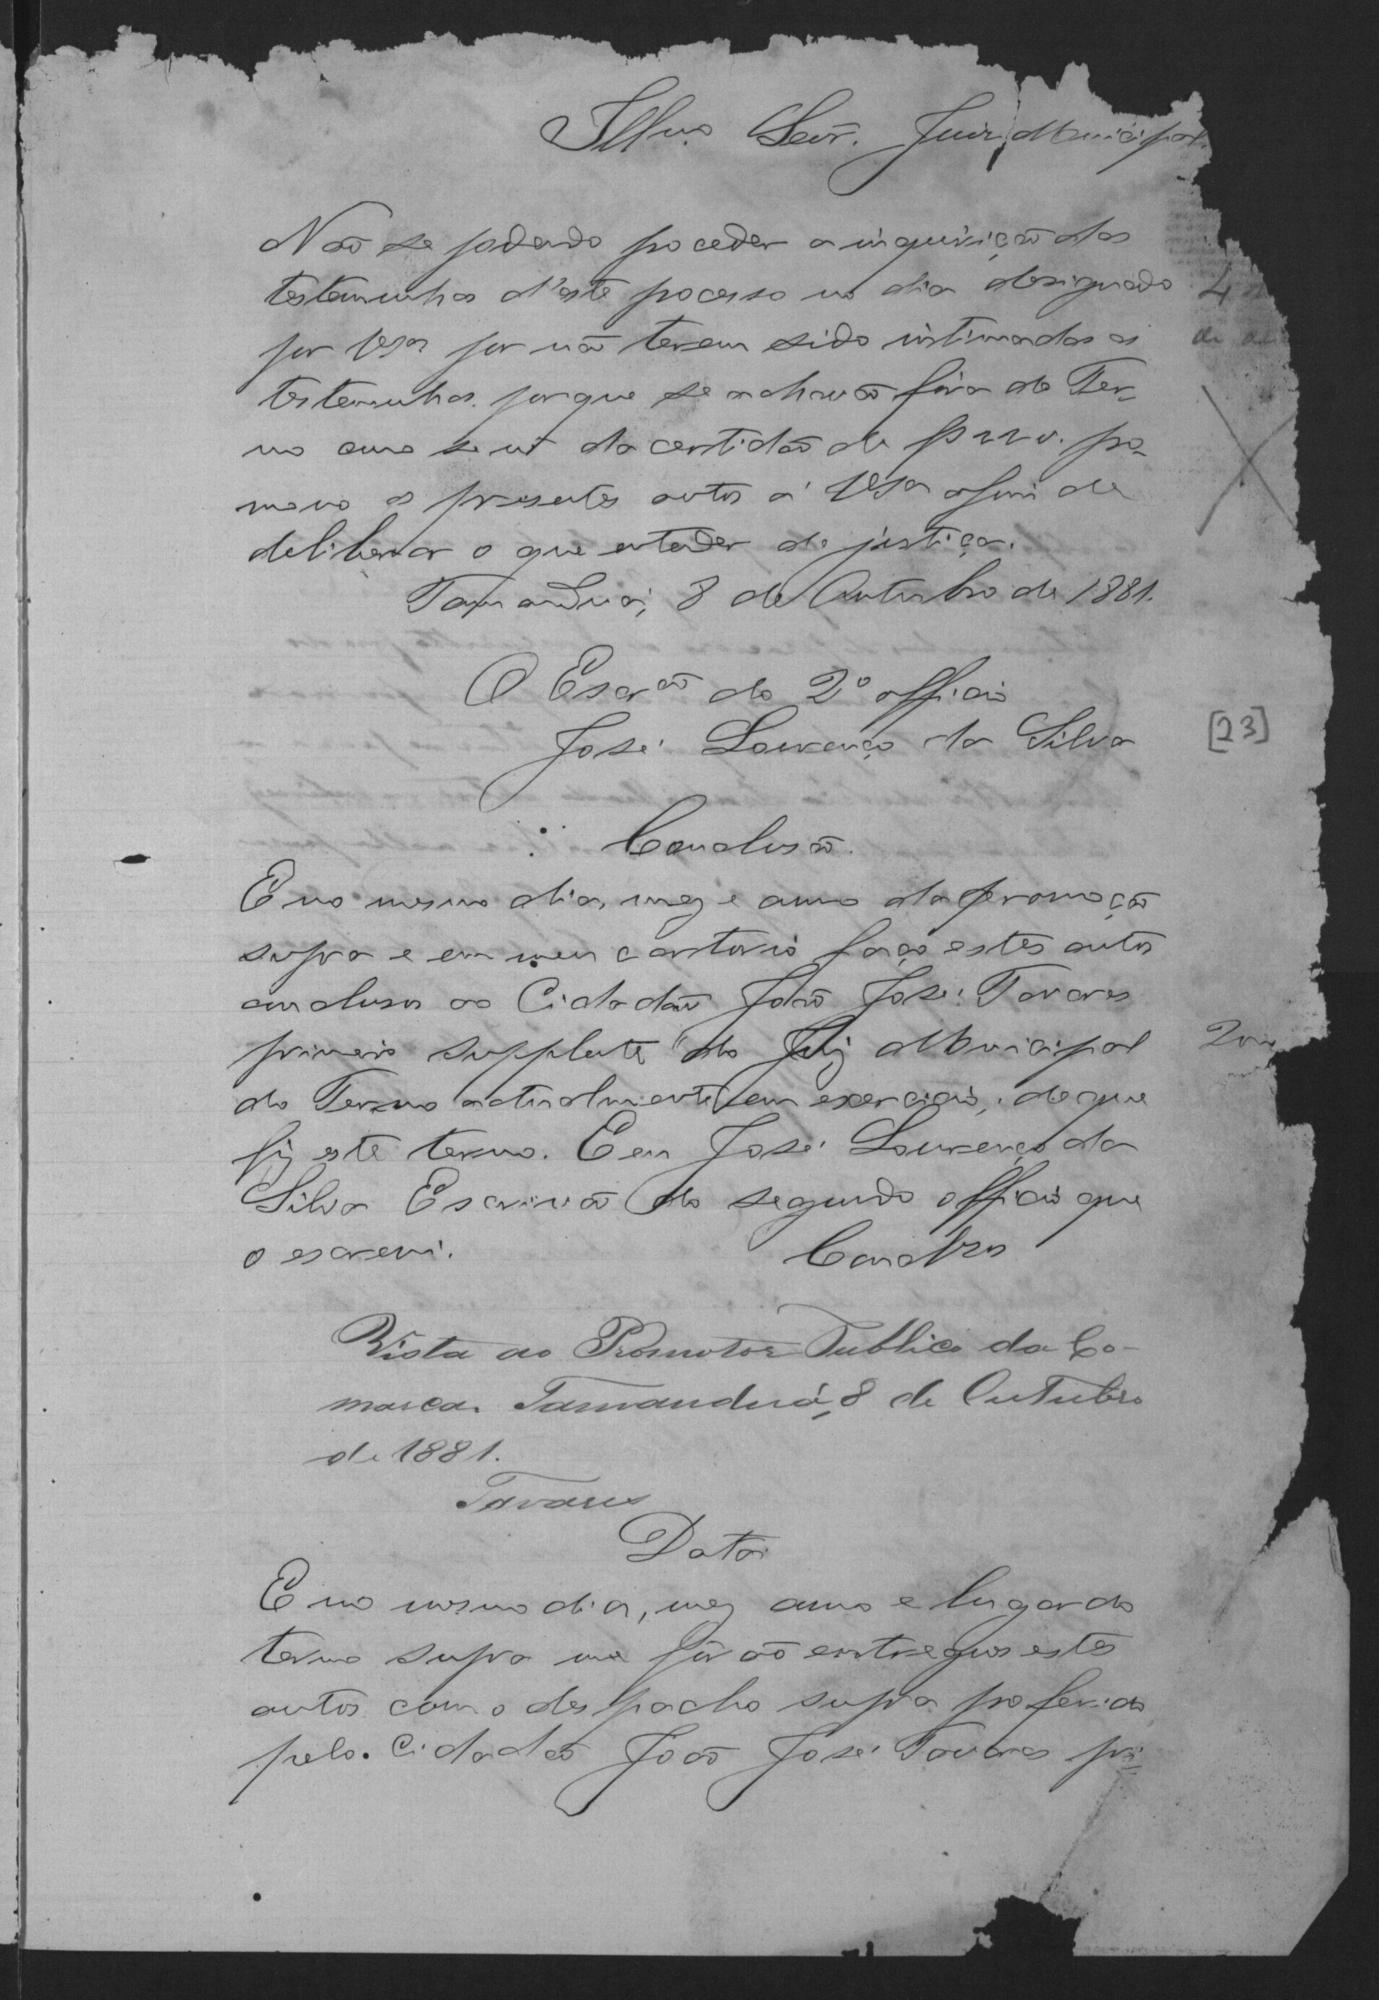 Illmo Senr. Juiz Municipal.
Não se podendo proceder a inquirição das
testemunhas d'este processo no dia designado
por VSa por não terem sido intimadas as
testemunhas porque se achavão fóra do Ter-
mo como se vê da certidão de pro-
movo os presentes autos á VSa afim de
deliberar o que entender de justiça.
Tamanduá, 8 de Outubro de 1881.
O Escrão do 2º officio
José Lourenço da Silva
[23]
Conclusão.
E no mesmo dia, mez e anno da promoção
supra e em meu cartorio faço estes autos
conclusos ao Cidadão João José Tavares
primeiro supplente do Juiz Municipal
do Termo actualmente em exercicio, de que
fiz este termo. E eu José Lourenço da
Silva Escrivão do segundo officio que
o escrevi. Conclzos
Vista ao Promotor Publico da Co-
marca. Tamanduá, 8 de Outubro
de 1881.
Tavares
Data
E no mesmo dia, mez anno e lugar do
termo supra me forão entregues estes
autos com o despacho supra proferido
pelo Cidadão João José Tavares pri-